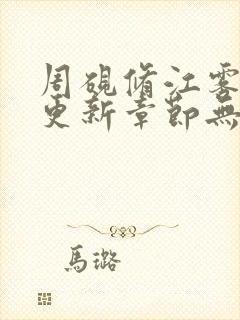 周硯脩江雾
更新章節無
馬璐